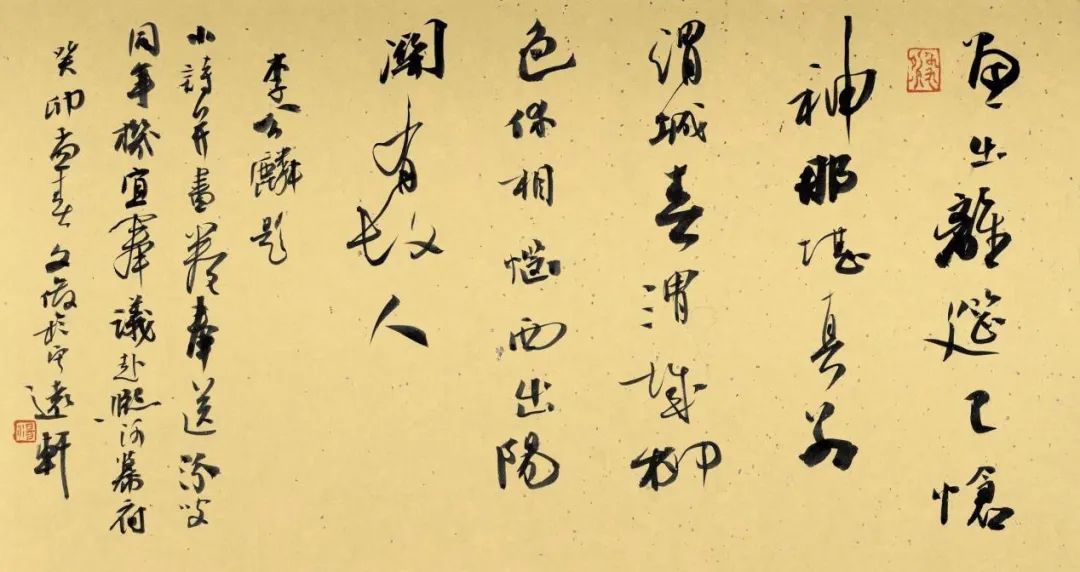 画出離筵已愴
神那堪真别
渭城春渭城柳
色休相惱西出陽
關有故人
李公麟題
小詩并畫卷奉送汾叟
同年機宜奉議赴熙河幕府
癸卯孟春文於遠軒